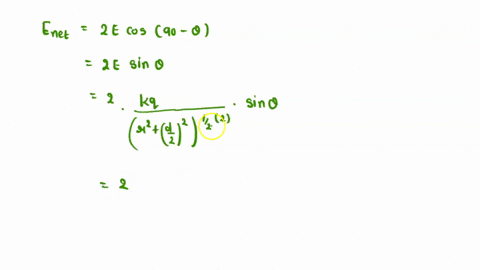 E_net = 2E cos (90 - θ)
= 2E sin θ
= 2 . kq / (r² + (d/2)²)^(1/2 (2)) . sin θ
= 2